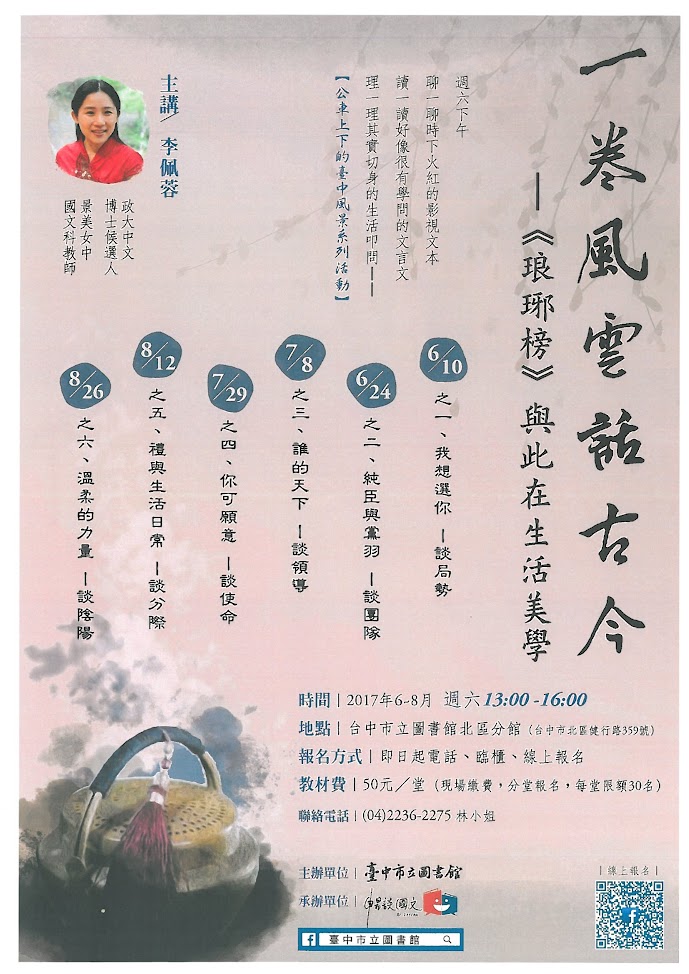 一卷風雲話古今
——《琅琊榜》與此在生活美學
週六下午
聊一聊時下火紅的影視文本
讀一讀好像很有學問的文言文
理一理其實切身的生活叩問——
【公車上下的臺中風景系列活動】
主講／ 李佩蓉
政大中文
博士候選人
景美女中
國文科教師
6/10
之一、我想選你 —談局勢
6/24
之二、純臣與黨羽 —談團隊
7/8
之三、誰的天下 —談領導
7/29
之四、你可願意 —談使命
8/12
之五、禮與生活日常 —談分際
8/26
之六、溫柔的力量 —談陰陽
時間｜2017年6-8月 週六13:00-16:00
地點｜台中市立圖書館北區分館（台中市北區健行路359號）
報名方式｜即日起電話、臨櫃、線上報名
教材費｜50元／堂（現場繳費，分堂報名，每堂限額30名）
聯絡電話｜(04)2236-2275 林小姐
主辦單位｜臺中市立圖書館
承辦單位｜
談國文
臺中市立圖書館
｜線上報名｜